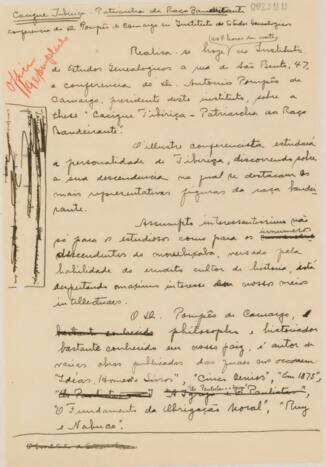 Cacique Tibiriça - Patriarcha da Raça Bandeirante
conferencia do Dr. Pompêo de Camargo no Instituto de Estudos Genealogicos
Realisa-se hoje, no Instituto
de Estudos Genealogicos a rua de São Bento, 47,
a conferencia do Dr. Antonio Pompêo de
Camargo, presidente deste instituto, sobre a
these "Cacique Tibiriça - Patriarcha da Raça
Bandeirante".
O illustre conferencista estudará
a personalidade de Tibiriça, discorrendo sobre
a sua descendencia na qual se destacam as
mais representativas figuras da raça bandei-
rante.
Assumpto interessantissimo não
só para os estudiosos como para os innumeros
descendentes do morubixaba, versado pela
habilidade do erudito cultor da historia, está
despertando o maximo interesse em nossos meios
intellectuaes.
O Dr. Pompêo de Camargo,
philosopho e historiador
bastante conhecido em nosso paiz, é autor de
varias obras publicadas das quaes nos occorrem
"Idéas, Homens e Livros", "Cinco", "Em 1875",
"O Fundamento da Obrigação Moral", "Ruy
e Nabuco".